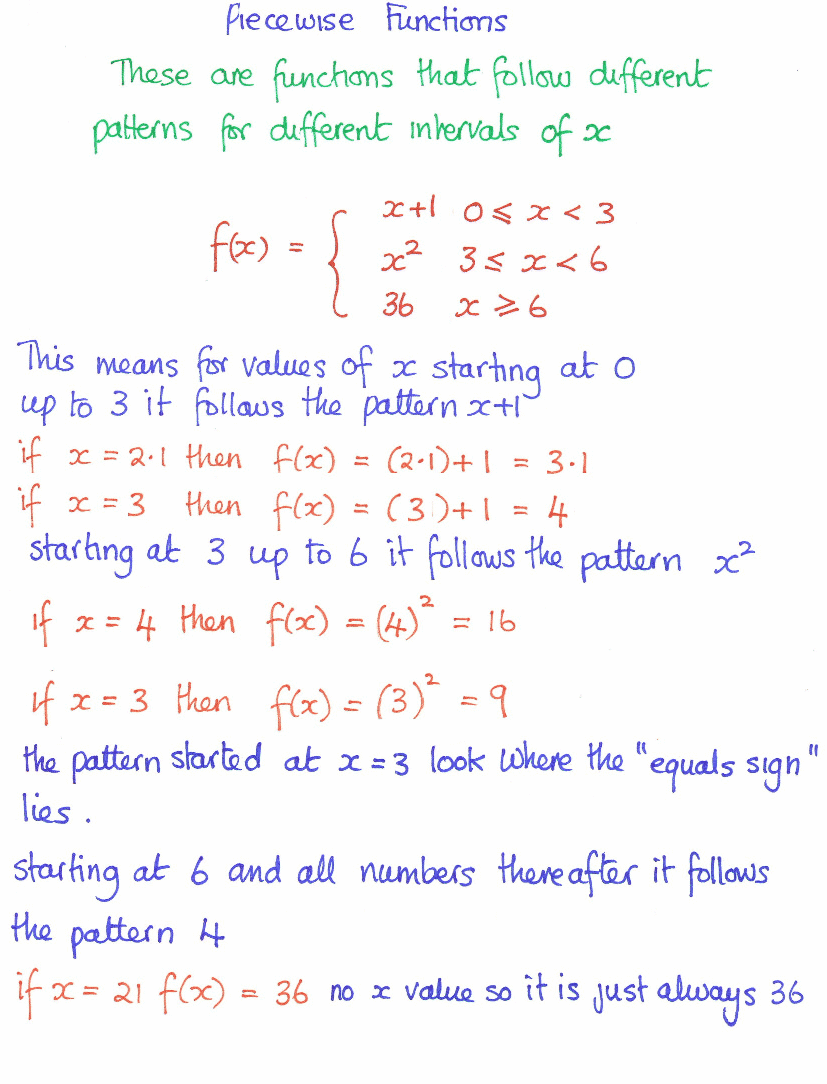 Piecewise Functions
These are functions that follow different
patterns for different intervals of x
f(x) = { x+1 0 ≤ x < 3
x² 3 ≤ x < 6
36 x ≥ 6
This means for values of x starting at 0
up to 3 it follows the pattern x+1
if x = 2·1 then f(x) = (2·1)+1 = 3·1
if x = 3 then f(x) = (3)+1 = 4
starting at 3 up to 6 it follows the pattern x²
if x = 4 then f(x) = (4)² = 16
if x = 3 then f(x) = (3)² = 9
the pattern started at x = 3 look where the "equals sign"
lies.
starting at 6 and all numbers thereafter it follows
the pattern 4
if x = 21 f(x) = 36 no x value so it is just always 36